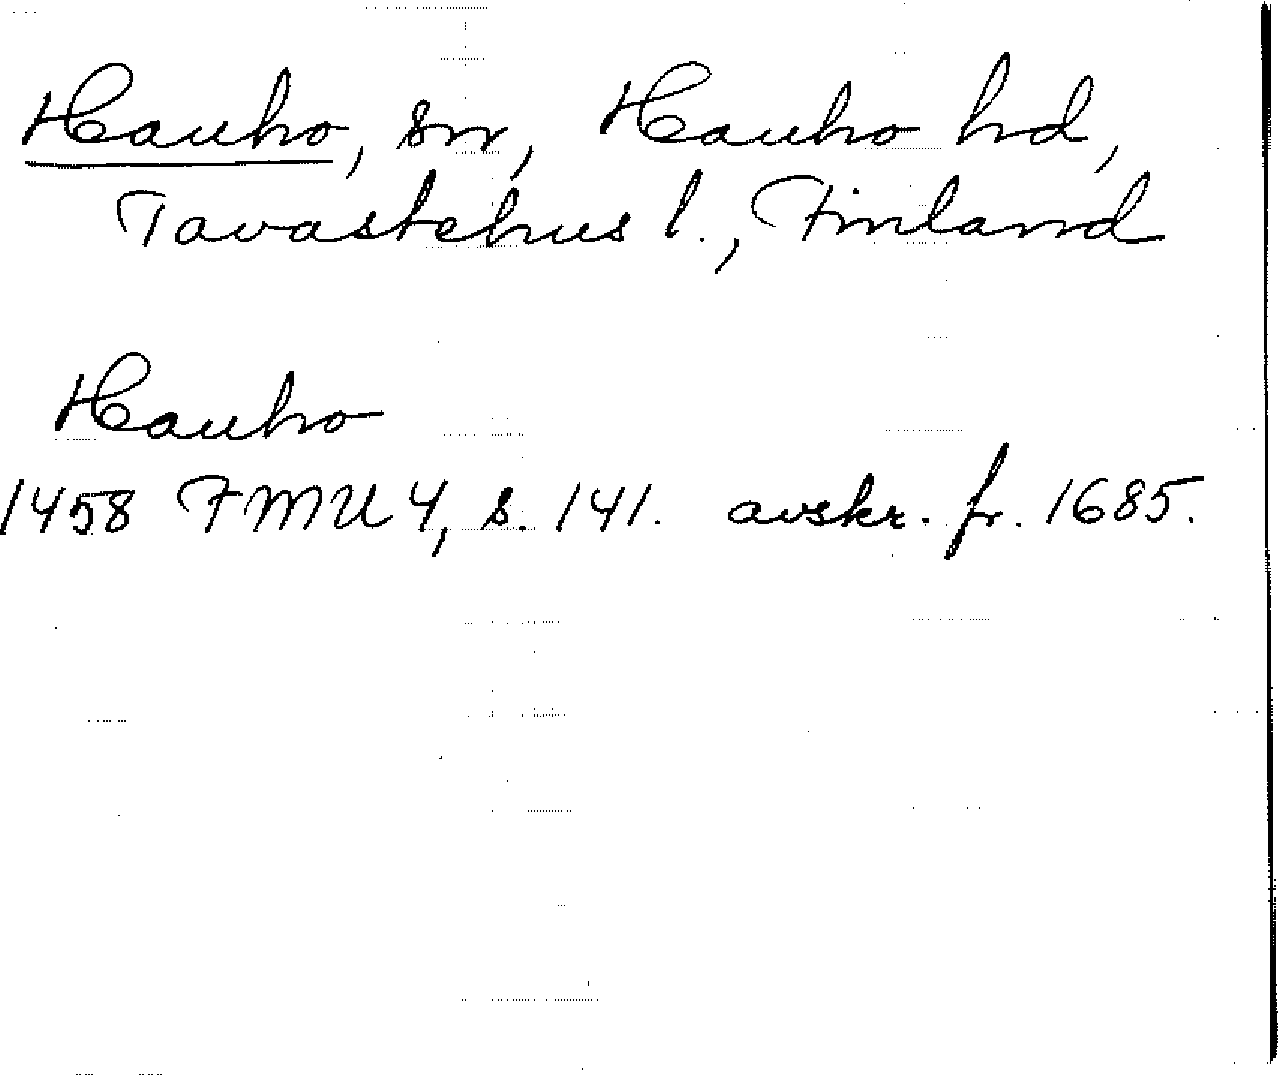 Hauho, sn, Hauho hd,
Tavastehus l., Finland
Hauho
1458 FMU 4, s. 141. avskr. fr. 1685.